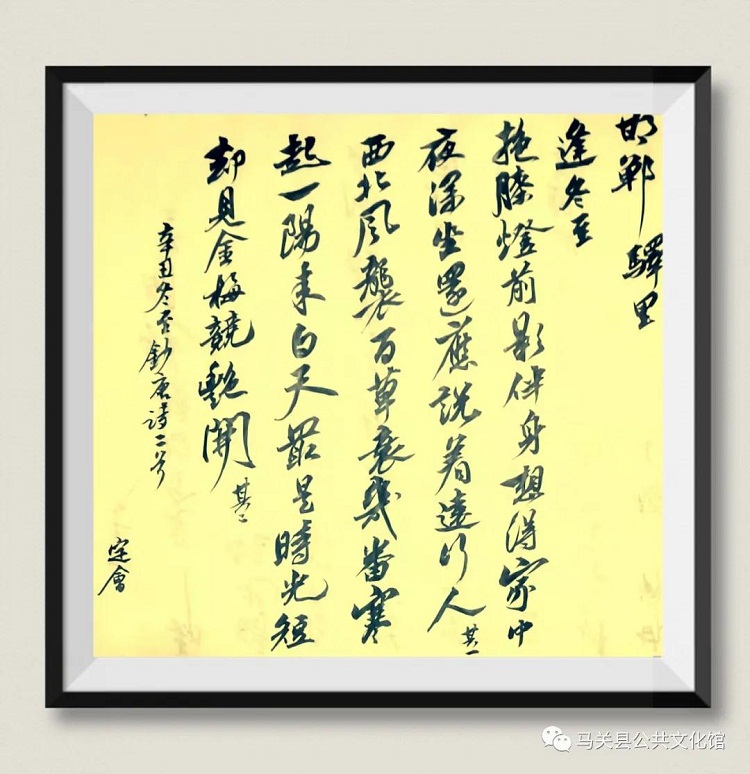 邯鄲驛里
逢冬至
抱膝燈前影伴身想得家中
夜深坐還應説着遠行人其一
西北風襲百草衰幾番寒
起一陽来白天最是時光短
却見金梅競艷開其二
辛丑冬至鈔唐詩二首
定會
马关县公共文化馆